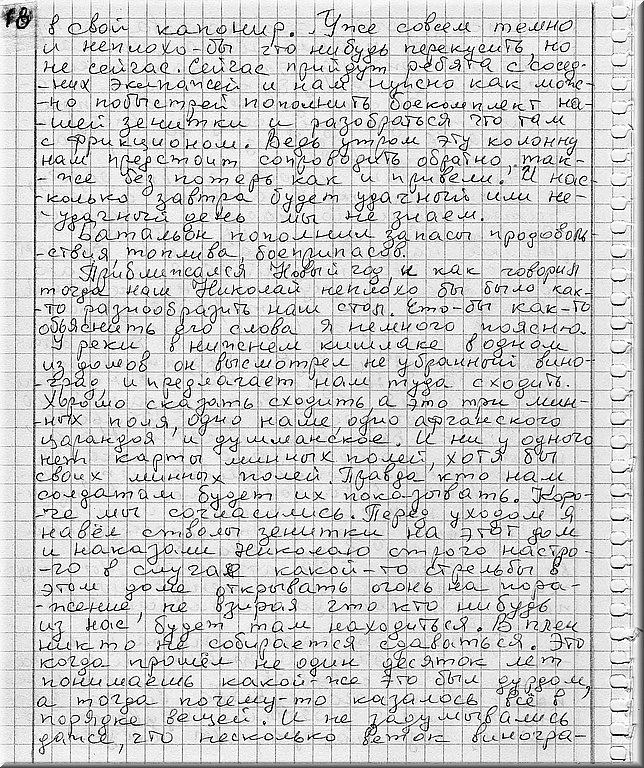 18
в свой капонир. Уже совсем темно
и неплохо-бы что нибудь перекусить но
не сейчас. Сейчас прийдут ребята с сосед-
-них экипажей и нам нужно как мож-
-но побыстрей пополнить боекомплект на-
-шей зенитки и разобраться что там
с фрикционом. Ведь утром эту колонну
нам предстоит сопроводить обратно, так-
-же без потерь как и привели. И нас-
-колько завтра будет удачный или не-
-удачный день мы не знаем.
Батальон пополнил запасы продоволь-
-ствия, топлива, боеприпасов.
Приближался Новый год и как говорил
тогда наш Николай неплохо бы было как-
-то разнообразить наш стол. Что-бы как-то
объяснить его слова я немного поясню.
У реки в нижнем кишлаке в одном
из домов он высмотрел не убранный вино-
-град, и предлагает нам туда сходить.
Хорошо сказать сходить, а это три мин-
-ных поля, одно наше, одно афганского
царандоя и душманское. И ни у одного
нет карты минных полей, хотя бы
своих минных полей. Правда кто нам
солдатам будет их показывать. Коро-
-че мы согласились. Перед уходом я
навёл стволы зенитки на этот дом
и наказали Николаю строго настро-
-го в случае какой-то стрельбы в
этом доме открывать огонь на пора-
-жение, не взирая что кто нибудь
из нас будет там находиться. В плен
никто не собирается сдаваться. Это
когда прошёл не один десяток лет
понимаешь какой-же это был дурдом,
а тогда почему-то казалось всё в
порядке вещей. И не задумывались
даже, что несколько веток виногра-